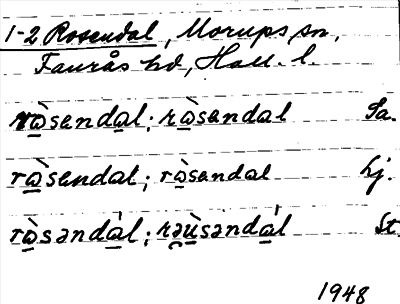 1-2 Rosendal, Morups sn,
Faurås hd, Hall. l.
rò̲senda̲l; rò̲sendal Sa.
rò̲sendal; rò̲sendal Lj.
rò̲səndá̲l; rəù̲səndá̲l St.
1948